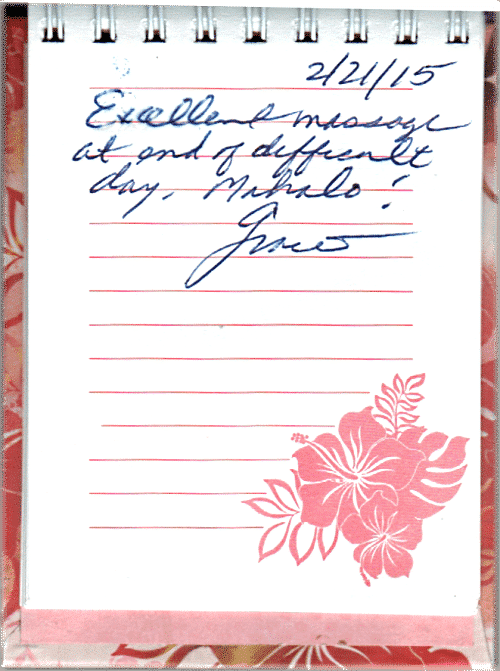 2/21/15
Excellent massage
at end of difficult
day. Mahalo!
Grace